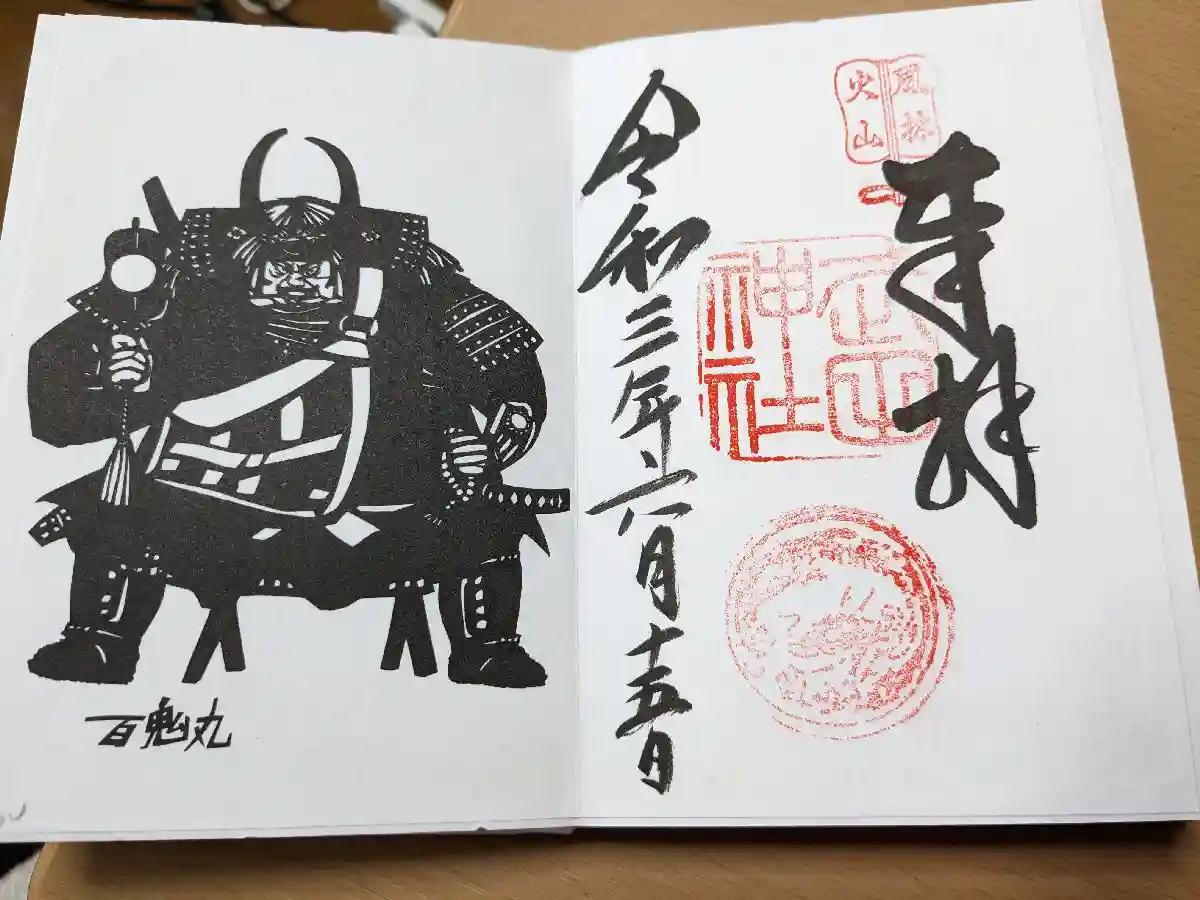 風林
火山
奉拝
武田
神社
令和三年六月十五日
百鬼丸